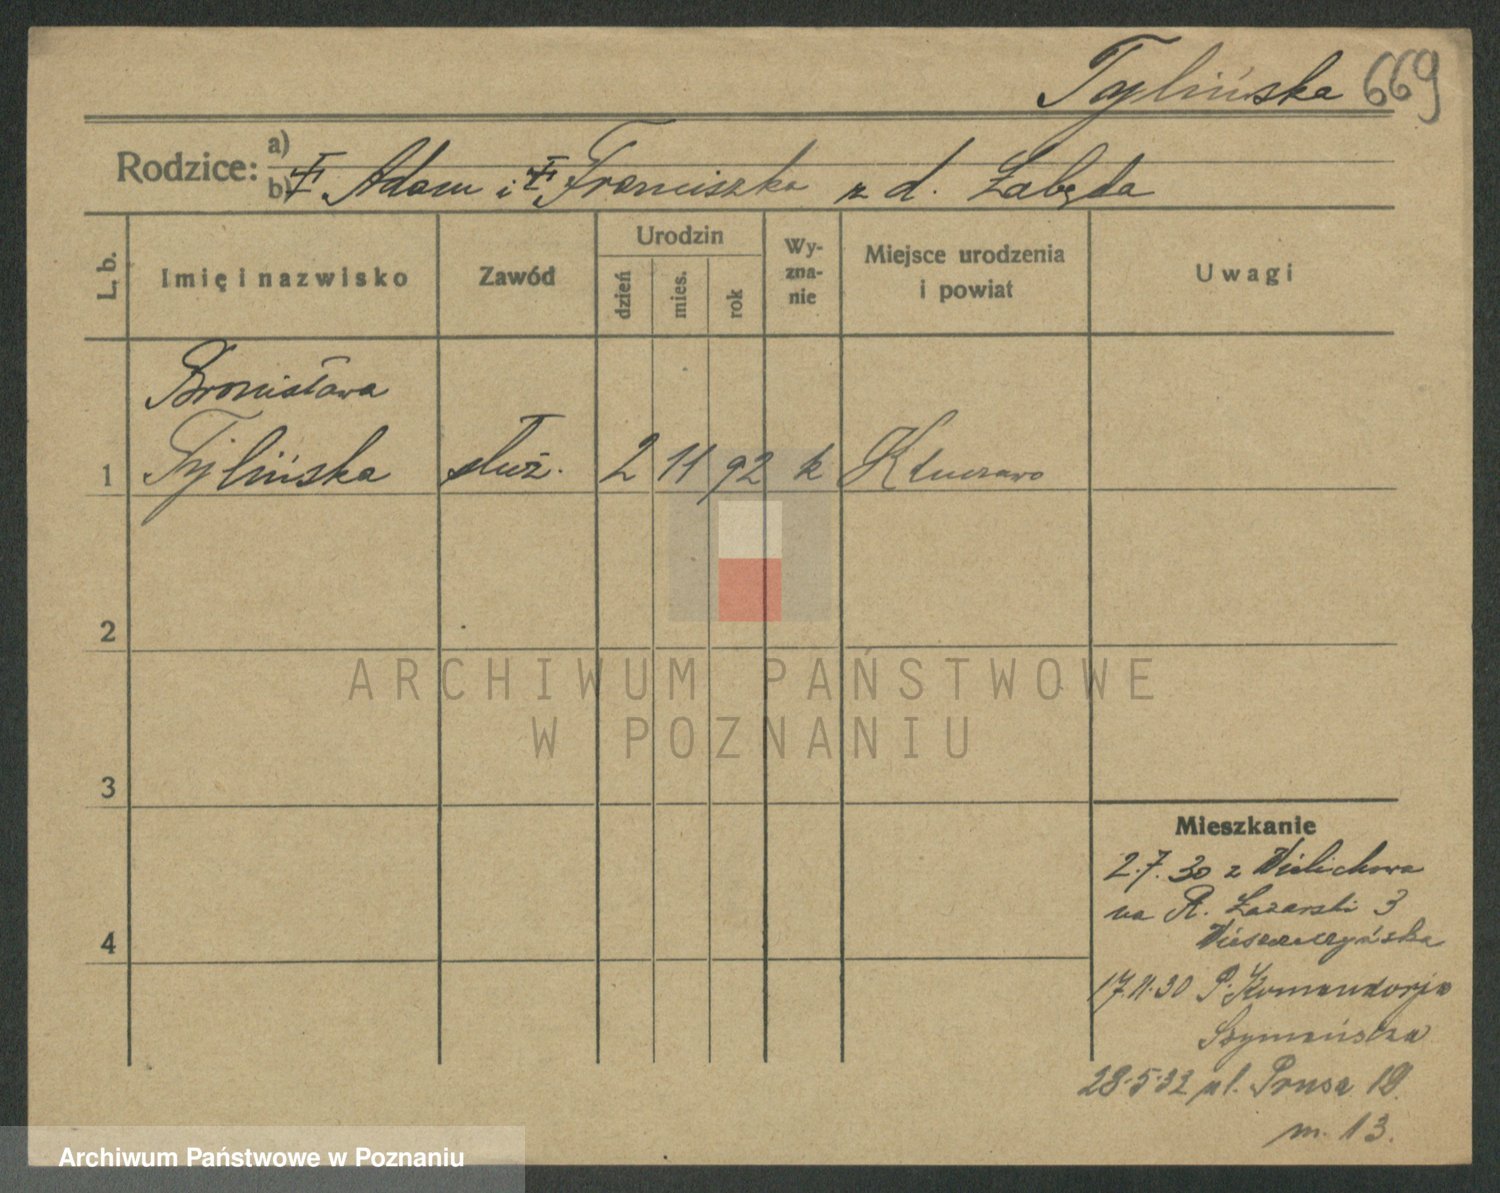 Tylińska 669
Rodzice: a)
b) Adam i Franciszka z d. Łabęda
L. b.
Imię i nazwisko
Zawód
Urodzin
dzień
mies.
rok
Wy-
zna-
nie
Miejsce urodzenia
i powiat
Uwagi
Bronisława
1 Tylińska służ. 2 11 92 k Kluczewo
2
3
4
Mieszkanie
2.7.30 z Wielichowa
na R. Łazarski 3
17.11.30 P. Komandorja
Szymańska
28.5.32 ul. Prusa 19.
m. 13.
ARCHIWUM PAŃSTWOWE
W POZNANIU
Archiwum Państwowe w Poznaniu